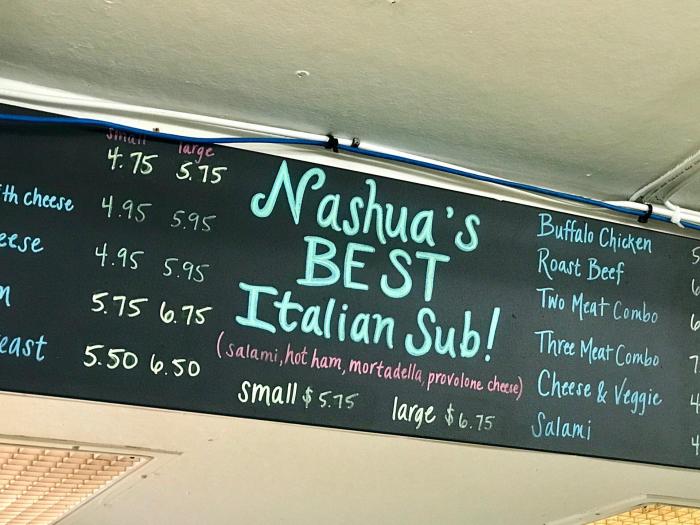 small large
4.75 5.75
th cheese 4.95 5.95
eese 4.95 5.95
5.75 6.75
east 5.50 6.50
Nashua's
BEST
Italian Sub!
(salami, hot ham, mortadella, provolone cheese)
small $5.75 large $6.75
Buffalo Chicken 5
Roast Beef 6
Two Meat Combo 6
Three Meat Combo 7
Cheese & Veggie 4
Salami 4